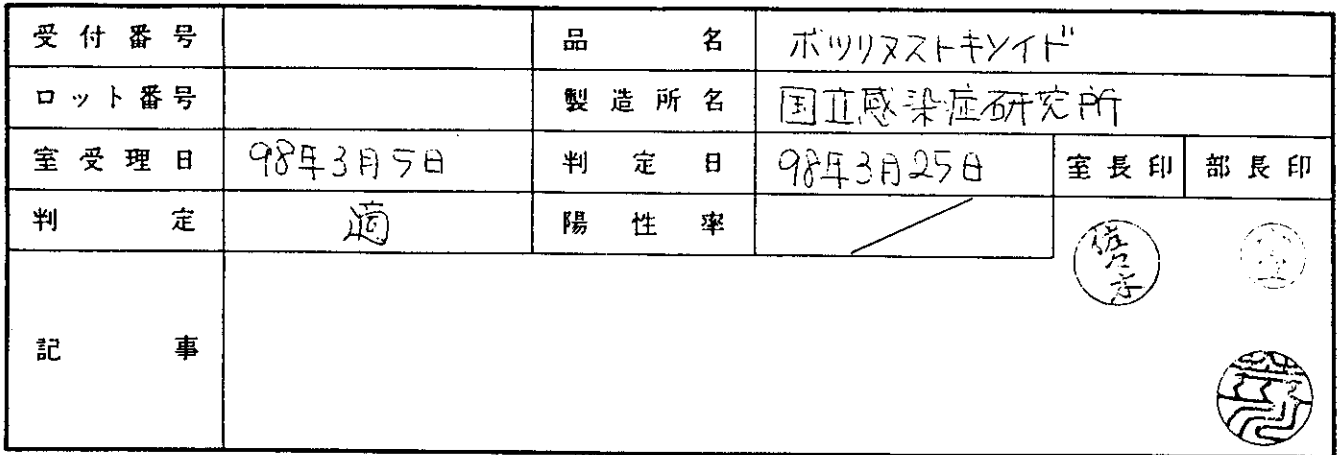 受付番号 品名 ボツリヌストキソイド
ロット番号 製造所名 国立感染症研究所
室受理日 98年3月5日 判定日 98年3月25日 室長印 部長印
判定 適 陽性率
記事